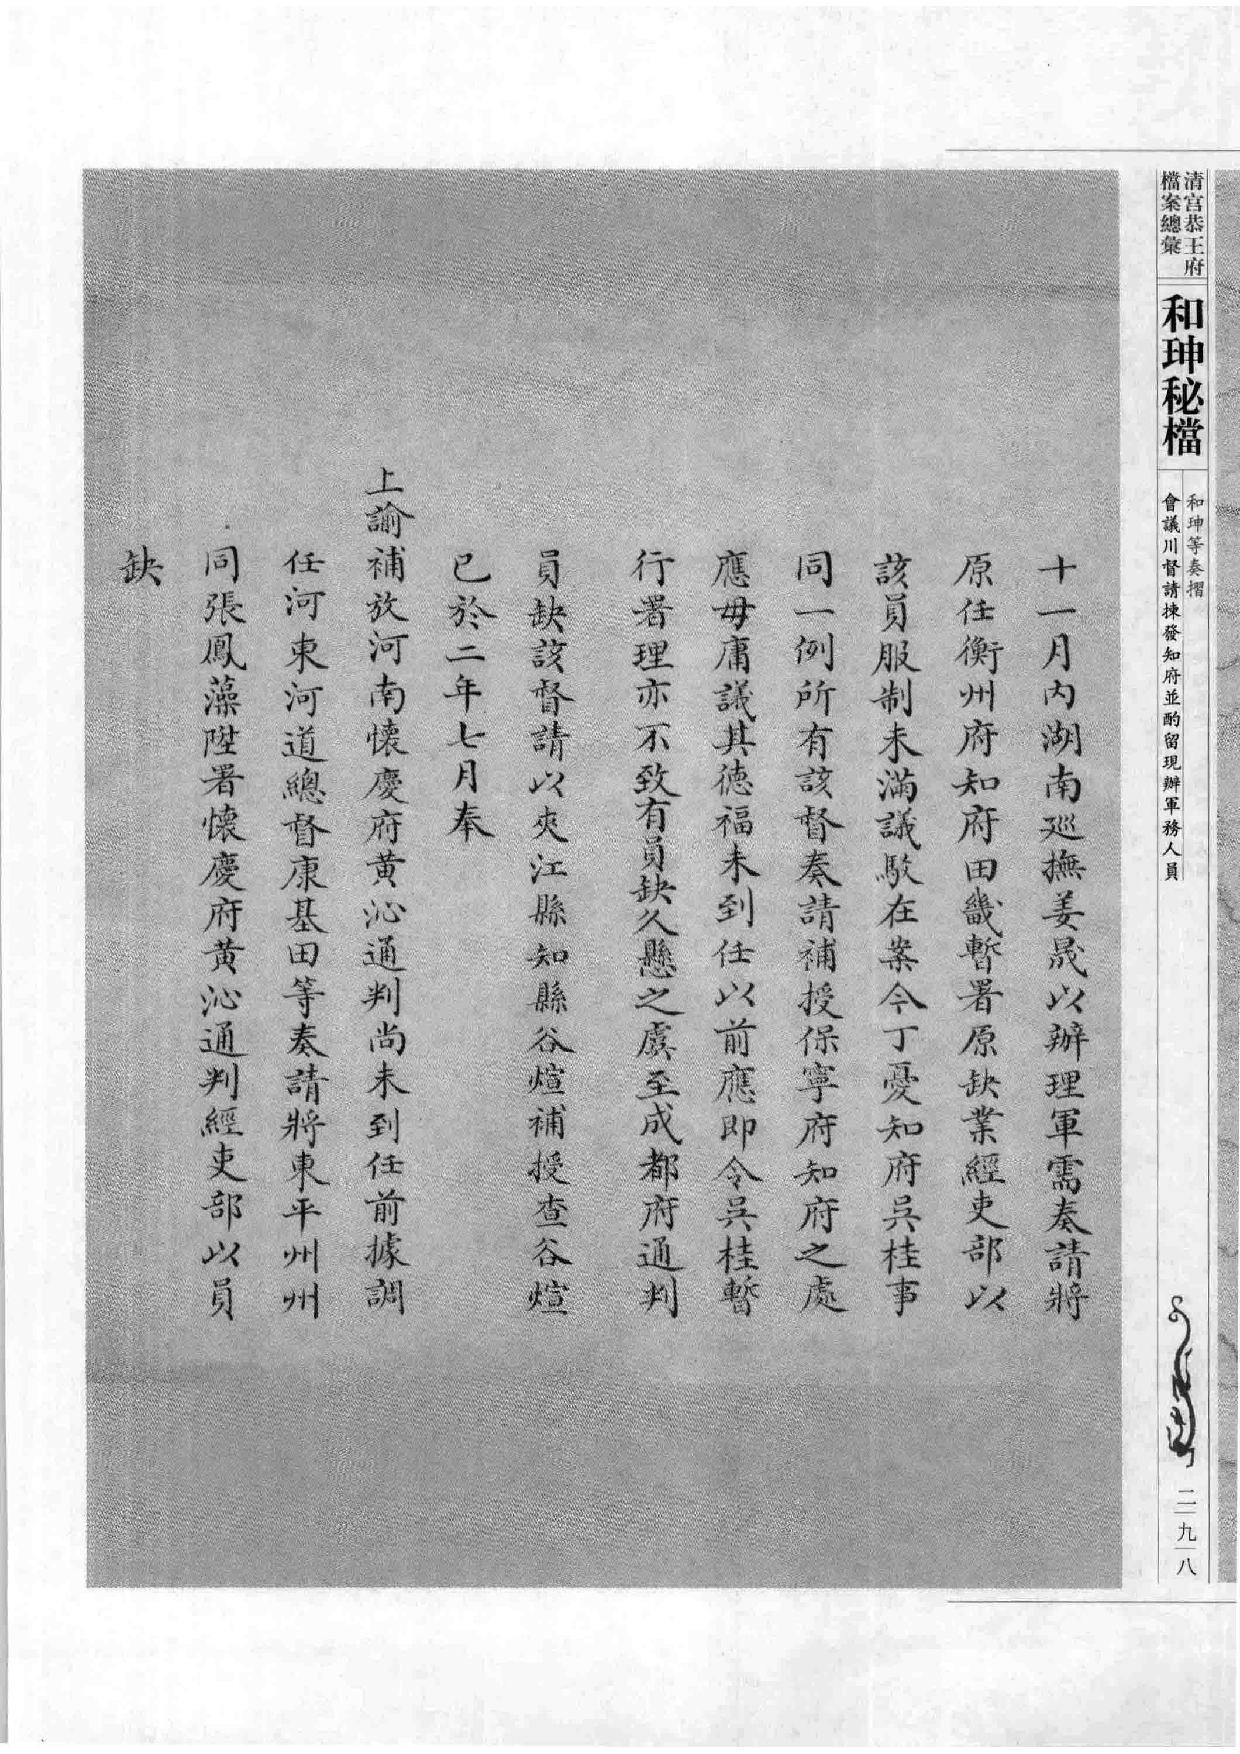 清宫恭王府
檔案總彙
和珅秘檔
和珅等奏摺
會議川督請揀發知府並酌留現辦軍務人員
二九八
十一月內湖南巡撫姜晟以辦理軍需奏請將
原任衡州府知府田畿暫署原缺業經吏部以
該員服制未滿議駁在案今丁憂知府吳桂事
同一例所有該督奏請補授保寧府知府之處
應毋庸議其德福未到任以前應即令吳桂暫
行署理亦不致有員缺久懸之虞至成都府通判
員缺該督請以夾江縣知縣谷煊補授查谷煊
已於二年七月奉
上諭補放河南懷慶府黃沁通判尚未到任前據調
任河東河道總督康基田等奏請將東平州州
同張鳳藻陞署懷慶府黃沁通判經吏部以員
缺